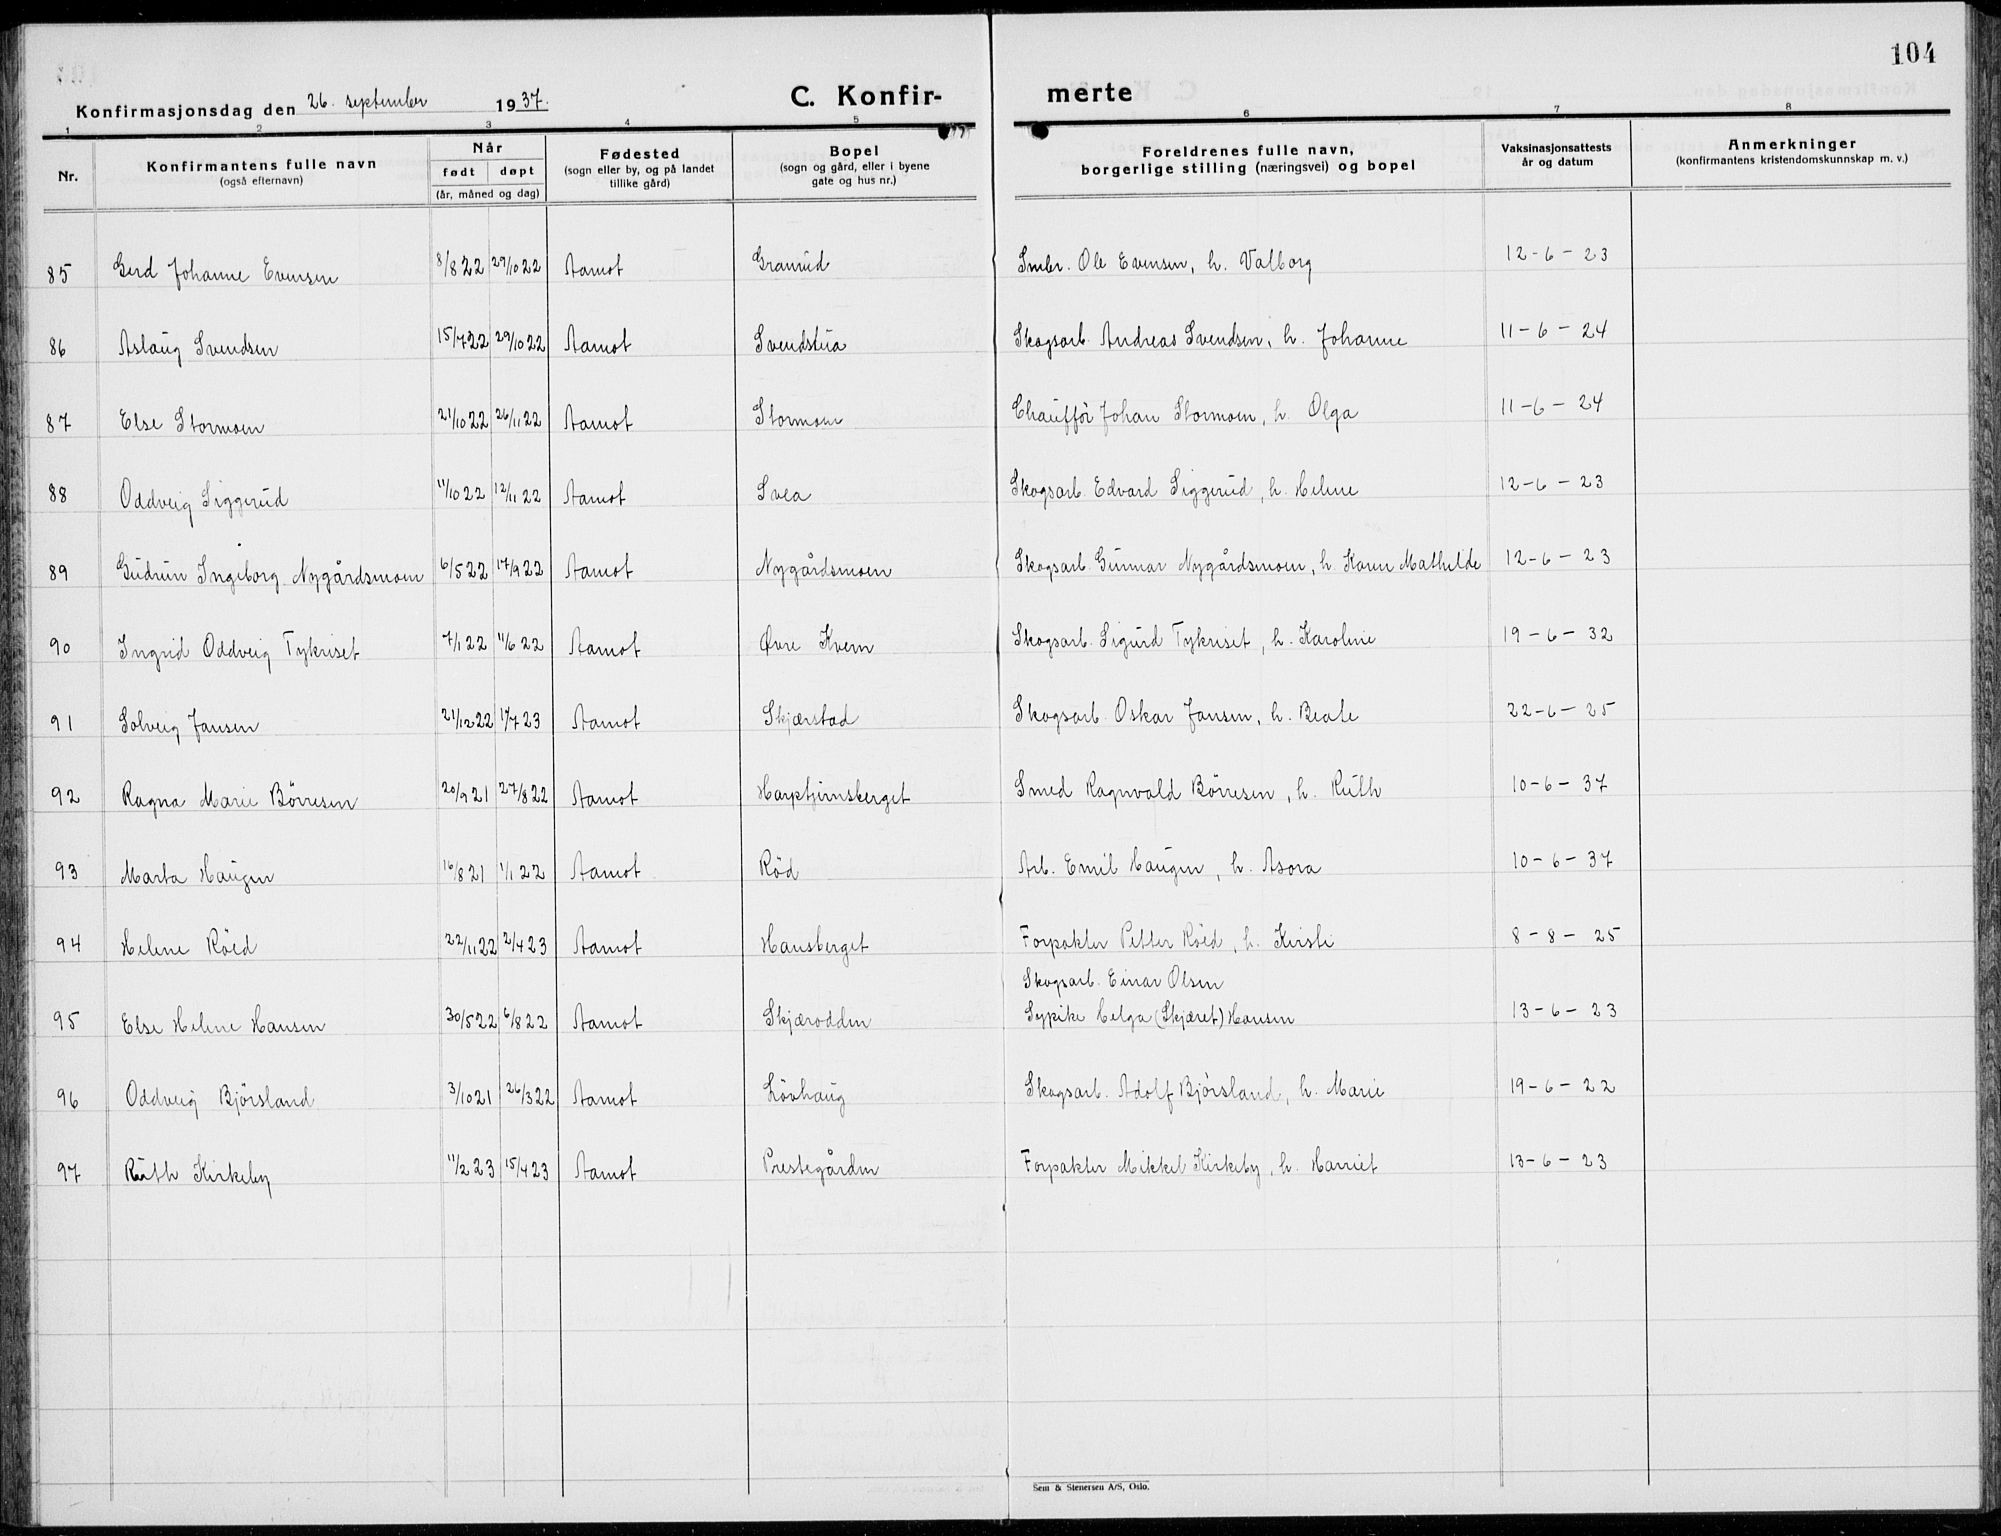 104
Konfirmasjonsdag den 26. september 1937. C. Konfirmerte
1 2 3 4 5 6 7 8
Nr.
Konfirmantens fulle navn
(også efternavn)
Når
født døpt
(år, måned og dag)
Fødested
(sogn eller by, og på landet
tillike gård)
Bopel
(sogn og gård, eller i byene
gate og hus nr.)
Foreldrenes fulle navn,
borgerlige stilling (næringsvei) og bopel
Vaksinasjonsattests
år og datum
Anmerkninger
(konfirmantens kristendomskunnskap m. v.)
85 Gerd Johanne Evensen 8/8 22 29/10 22 Aamot Granrud Smbr. Ole Evensen, h. Valborg 12-6-23
86 Aslaug Svendsen 15/7 22 29/10 22 Aamot Svendstua Skogsarb. Andreas Svendsen, h. Johanne 11-6-24
87 Else Stormoen 21/10 22 26/11 22 Aamot Stormoen Chauffør Johan Stormoen, h. Olga 11-6-24
88 Oddveig Siggerud 11/10 22 12/11 22 Aamot Svea Skogsarb. Edvard Siggerud, h. Helene 12-6-23
89 Gudrun Ingeborg Nygårdsmoen 6/5 22 17/9 22 Aamot Nygårdsmoen Skogsarb. Gunnar Nygårdsmoen, h. Karen Mathilde 12-6-23
90 Ingrid Oddveig Tykriset 7/1 22 11/6 22 Aamot Øvre Kvern Skogsarb. Sigurd Tykriset, h. Karoline 19-6-32
91 Solveig Jansen 21/12 22 1/7 23 Aamot Skjærstad Skogsarb. Oskar Jansen, h. Beate 22-6-25
92 Ragna Marie Børresen 20/9 21 27/8 22 Aamot Harptjernsberget Smed Ragnvald Børresen, h. Ruth 10-6-37
93 Marta Haugen 16/8 21 1/1 22 Aamot Rød Arb. Emil Haugen, h. Asora 10-6-37
94 Helene Røed 22/11 22 2/4 23 Aamot Hansberget Forpakter Petter Røed, h. Kirsti 8-8-25
Skogsarb. Einar Olsen
95 Else Helene Hansen 30/5 22 6/8 22 Aamot Skjærodden Sypike Helga (Skjæret) Hansen 13-6-23
96 Oddveig Bjørsland 3/10 21 26/3 22 Aamot Løvhaug Skogsarb. Adolf Bjørsland, h. Marie 19-6-22
97 Ruth Kirkeby 11/2 23 15/4 23 Aamot Prestegården Forpakter Mikkel Kirkeby, h. Harriet 13-6-23
Sem & Stenersen A/S, Oslo.